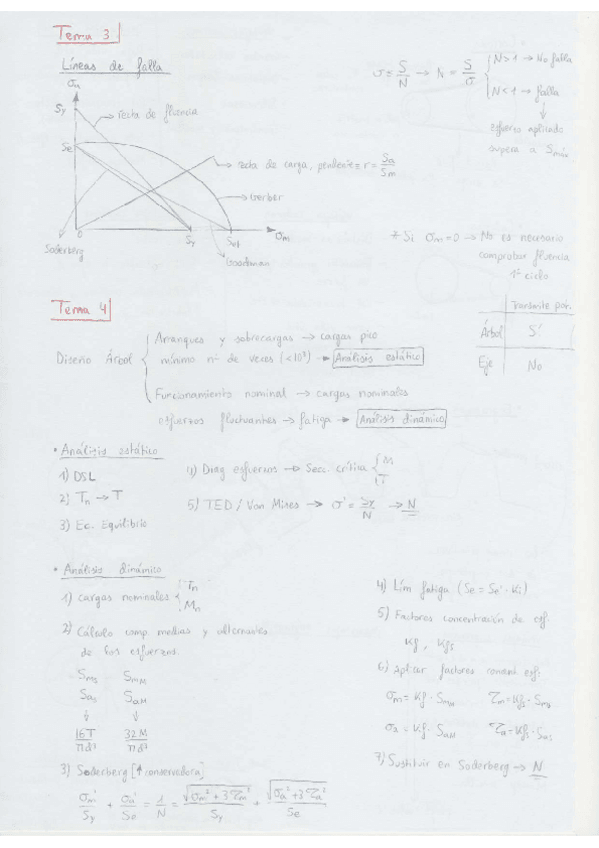 Tema 3
Líneas de falla
σa
Sy
Recta de fluencia
Se
recta de carga, pendiente = r = Sa/Sm
Gerber
0
Sy
Sut
σm
Soderberg
Goodman
σ = S/N → N = S/σ
N>1 → No falla
N<1 → falla
esfuerzo aplicado
supera a Smáx
* Si σm=0 → No es necesario
comprobar fluencia
1er ciclo
Tema 4
Torsante par.
Árbol Sí
Eje No
Diseño Árbol
Arranques y sobrecargas → cargas pico
mínimo nº de veces (<10³) → Análisis estático
Funcionamiento nominal → cargas nominales
esfuerzos fluctuantes → fatiga → Análisis dinámico
• Análisis estático
1) DSL
2) Tn → T
3) Ec. Equilibrio
4) Diag esfuerzos → Secc. crítica { M T
5) TED / Von Mises → σ' = Sy/N → N
• Análisis dinámico
1) Cargas nominales { Tn Mn
2) Cálculo comp. medias y alternantes
de los esfuerzos.
Sms SmM
Sas SaM
↓ ↓
16T/πd³ 32M/πd³
3) Soderberg [↑ conservadora]
σm'/Sy + σa'/Se = 1/N = √(σm²+3τm²)/Sy + √(σa²+3τa²)/Se
4) Lím fatiga (Se = Se'·Ki)
5) Factores concentración de esf.
Kf, Kfs
6) Aplicar factores concent esf:
σm = Kf·SmM τm = Kfs·Sms
σa = Kf·SaM τa = Kfs·Sas
7) Sustituir en Soderberg → N